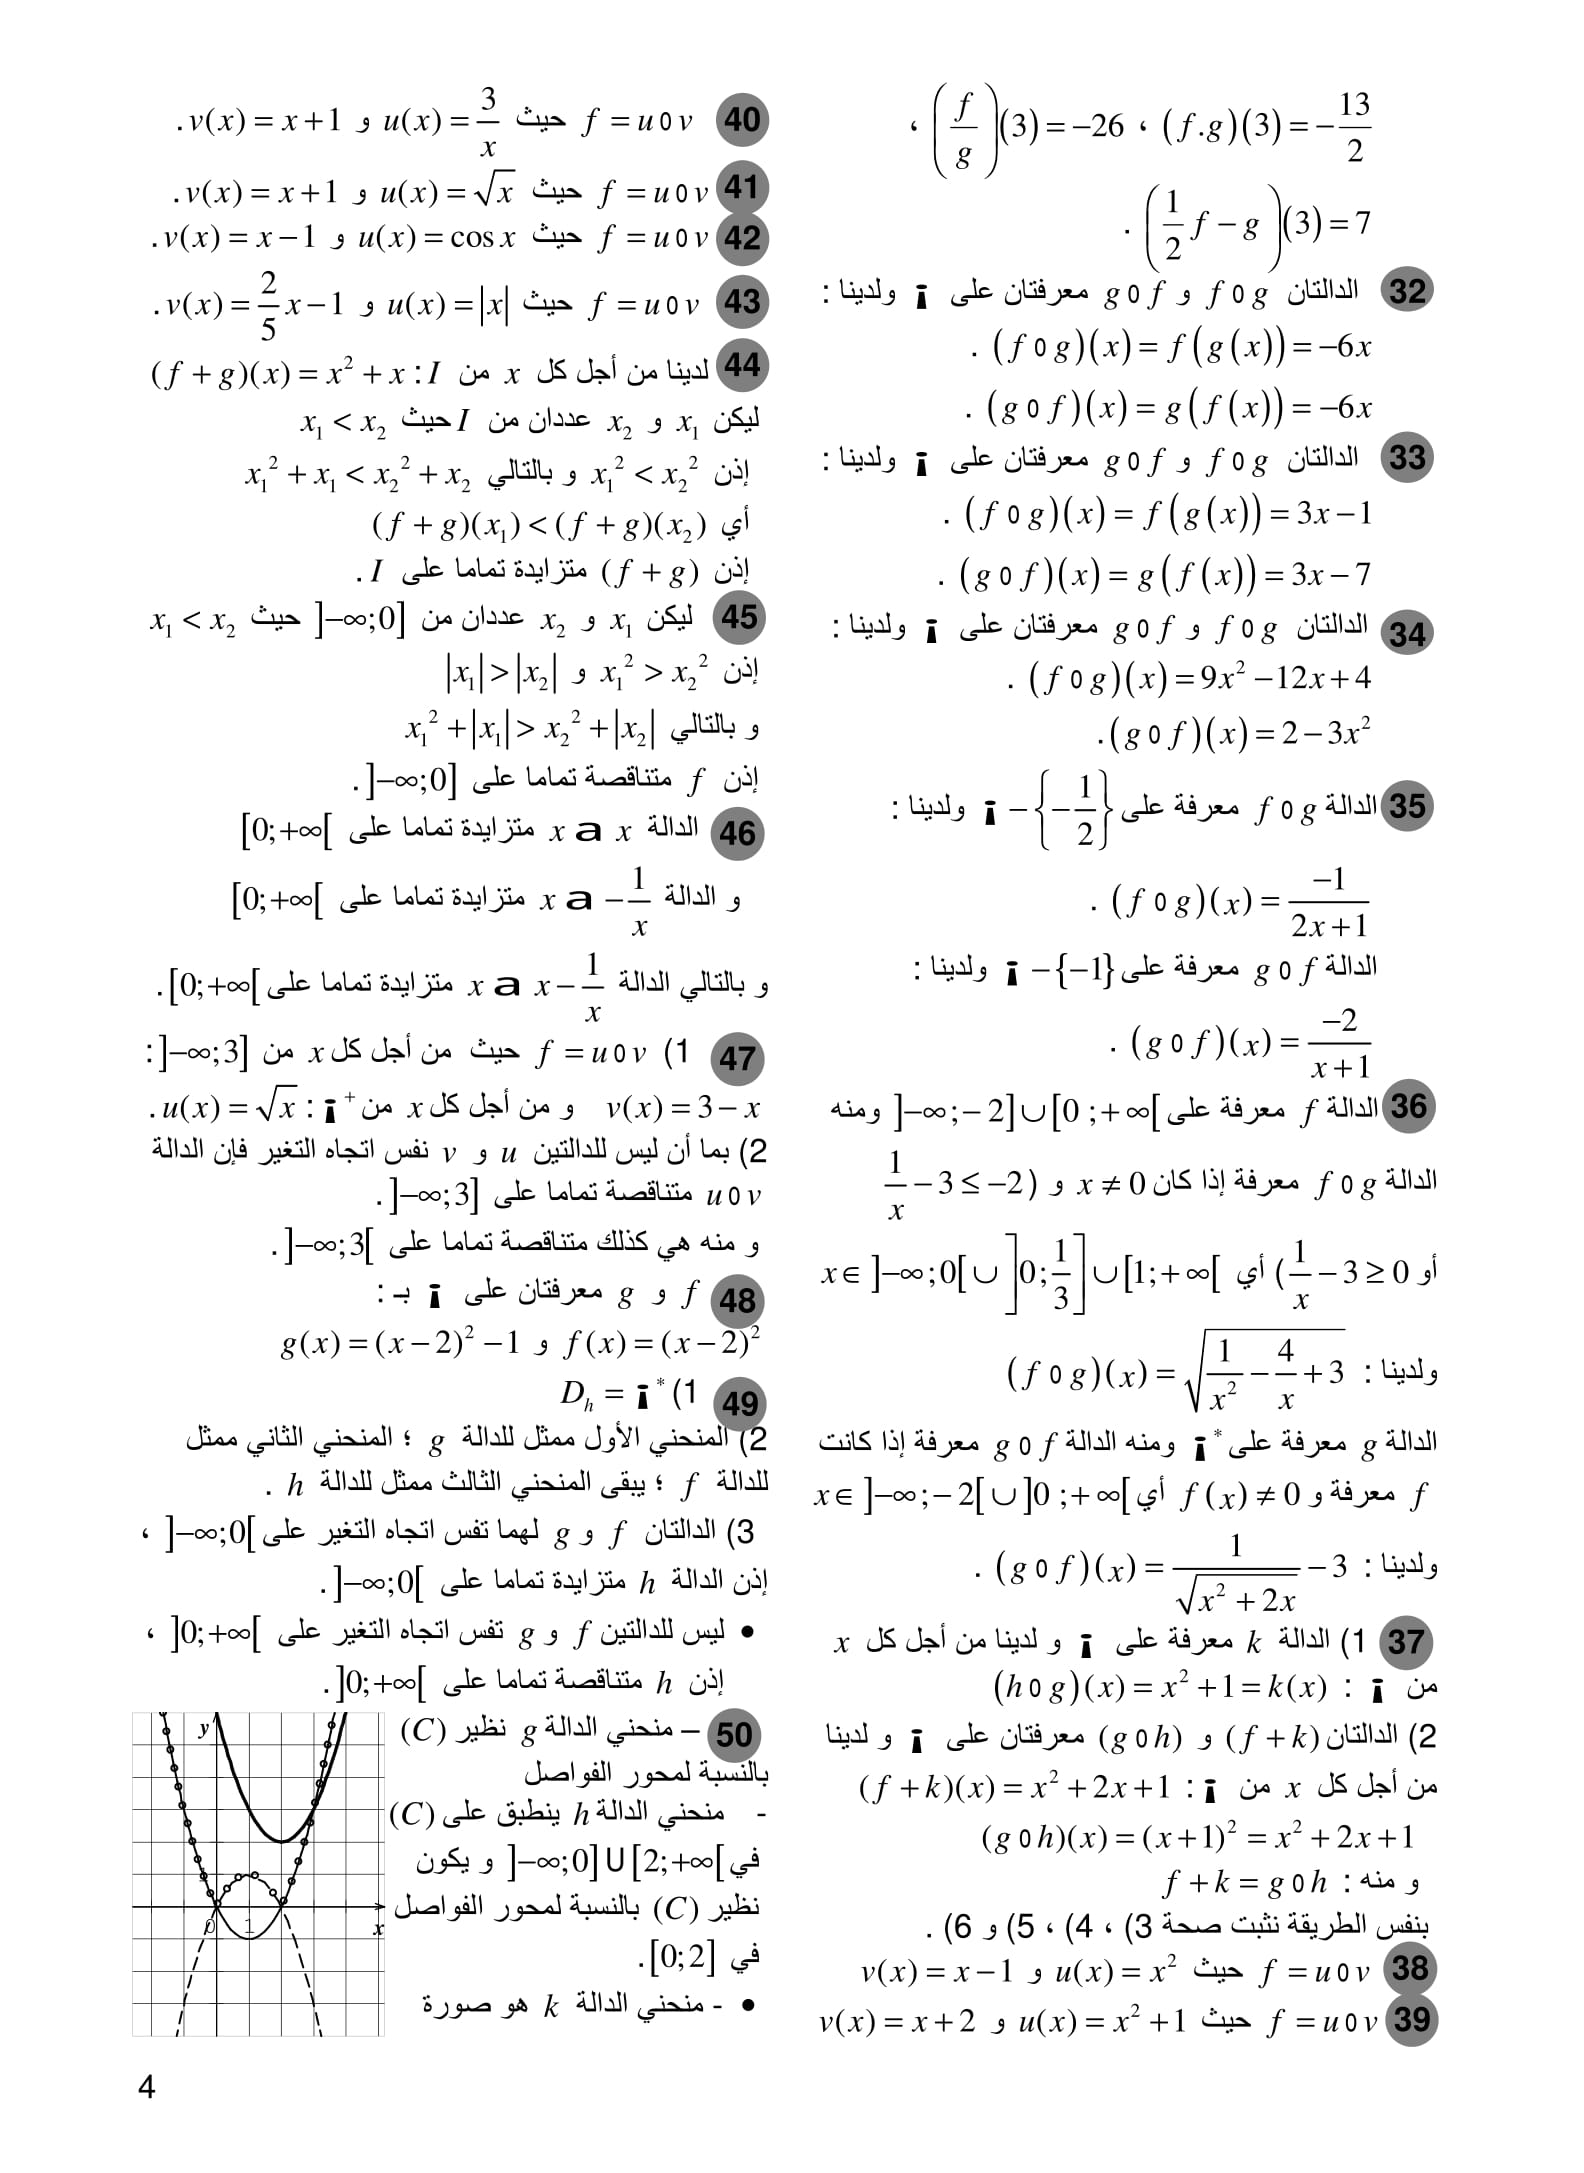 (f.g)(3) = -13/2 ، (f/g)(3) = -26 ،
(1/2 f - g)(3) = 7 .
32 الدالتان f o g و g o f معرفتان على ¡ ولدينا :
(f o g)(x) = f(g(x)) = -6x .
(g o f)(x) = g(f(x)) = -6x .
33 الدالتان f o g و g o f معرفتان على ¡ ولدينا :
(f o g)(x) = f(g(x)) = 3x - 1 .
(g o f)(x) = g(f(x)) = 3x - 7 .
34 الدالتان f o g و g o f معرفتان على ¡ ولدينا :
(f o g)(x) = 9x² - 12x + 4 .
(g o f)(x) = 2 - 3x² .
35 الدالة f o g معرفة على ¡ - {-1/2} ولدينا :
(f o g)(x) = -1/(2x+1) .
الدالة g o f معرفة على ¡ - {-1} ولدينا :
(g o f)(x) = -2/(x+1) .
36 الدالة f معرفة على ]-∞;-2]∪[0;+∞[ ومنه
الدالة f o g معرفة إذا كان x ≠ 0 و (1/x - 3 ≤ -2
أو 1/x - 3 ≥ 0) أي x ∈ ]-∞;0[ ∪ ]0;1/3] ∪ [1;+∞[
ولدينا : (f o g)(x) = √(1/x² - 4/x + 3)
الدالة g معرفة على ¡* ومنه الدالة g o f معرفة إذا كانت
f معرفة و f(x) ≠ 0 أي x ∈ ]-∞;-2[ ∪ ]0;+∞[
ولدينا : (g o f)(x) = 1/√(x² + 2x) - 3 .
37 1) الدالة k معرفة على ¡ و لدينا من أجل كل x
من ¡ : (h o g)(x) = x² + 1 = k(x)
2) الدالتان (f + k) و (g o h) معرفتان على ¡ و لدينا
من أجل كل x من ¡ : (f + k)(x) = x² + 2x + 1
(g o h)(x) = (x+1)² = x² + 2x + 1
و منه : f + k = g o h
بنفس الطريقة نثبت صحة 3) ، 4) ، 5) و 6) .
38 f = u o v حيث u(x) = x² و v(x) = x - 1
39 f = u o v حيث u(x) = x² + 1 و v(x) = x + 2
40 f = u o v حيث u(x) = 3/x و v(x) = x + 1 .
41 f = u o v حيث u(x) = √x و v(x) = x + 1 .
42 f = u o v حيث u(x) = cos x و v(x) = x - 1 .
43 f = u o v حيث u(x) = |x| و v(x) = 2/5 x - 1 .
44 لدينا من أجل كل x من I : (f + g)(x) = x² + x
ليكن x₁ و x₂ عددان من I حيث x₁ < x₂
إذن x₁² < x₂² و بالتالي x₁² + x₁ < x₂² + x₂
أي (f + g)(x₁) < (f + g)(x₂)
إذن (f + g) متزايدة تماما على I .
45 ليكن x₁ و x₂ عددان من ]-∞;0] حيث x₁ < x₂
إذن x₁² > x₂² و |x₁| > |x₂|
و بالتالي x₁² + |x₁| > x₂² + |x₂|
إذن f متناقصة تماما على ]-∞;0] .
46 الدالة x a x متزايدة تماما على [0;+∞[
و الدالة x a -1/x متزايدة تماما على [0;+∞[
و بالتالي الدالة x a x - 1/x متزايدة تماما على [0;+∞[ .
47 1) f = u o v حيث من أجل كل x من ]-∞;3] :
v(x) = 3 - x و من أجل كل x من ¡⁺ : u(x) = √x .
2) بما أن ليس للدالتين u و v نفس اتجاه التغير فإن الدالة
u o v متناقصة تماما على ]-∞;3] .
و منه هي كذلك متناقصة تماما على ]-∞;3[ .
48 f و g معرفتان على ¡ بـ :
f(x) = (x-2)² و g(x) = (x-2)² - 1
49 1) D_h = ¡*
2) المنحني الأول ممثل للدالة g ؛ المنحني الثاني ممثل
للدالة f ؛ يبقى المنحني الثالث ممثل للدالة h .
3) الدالتان f و g لهما تفس اتجاه التغير على ]-∞;0[ ،
إذن الدالة h متزايدة تماما على ]-∞;0[ .
• ليس للدالتين f و g تفس اتجاه التغير على ]0;+∞[ ،
إذن h متناقصة تماما على ]0;+∞[ .
50 – منحني الدالة g نظير (C)
بالنسبة لمحور الفواصل
- منحني الدالة h ينطبق على (C)
في ]-∞;0] U [2;+∞[ و يكون
نظير (C) بالنسبة لمحور الفواصل
في [0;2] .
• - منحني الدالة k هو صورة
y
0 1 x
4